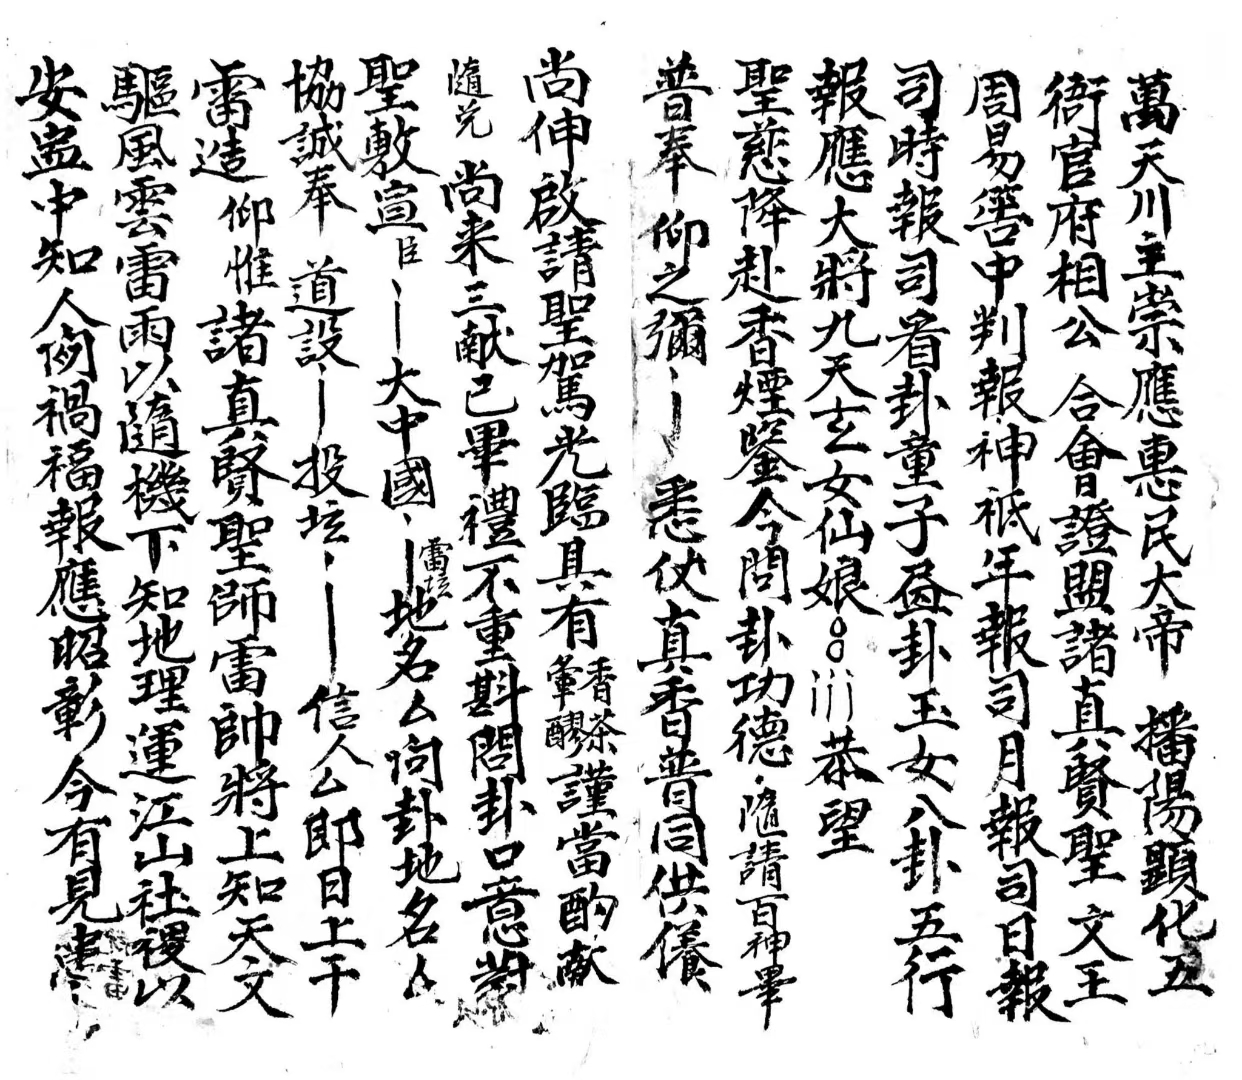 萬天川主崇應惠民大帝 播陽顯化五
衙官府相公 合會證盟諸真賢聖 文王
周易筶中判報神祇年報司月報司日報
司時報司看卦童子益卦玉女八卦五行
報應大將九天玄女仙娘 恭望
聖慈降赴香煙鑒今問卦功德 隨請百神畢
普奉 仰之彌 悉伏真香普同供養
尚伸啟請聖駕光臨具有 香茶 醪 謹當酌献
隨兑 尚来三献已畢禮不重斟問卦口意對
聖敷宣臣 大中國 雷坛 地名厶问卦地名厶
協誠奉 道設 投坛 信人厶郎日上干
雷造 仰惟諸真賢聖師雷帥將上知天文
驅風雲雷雨以隨機下知地理運江山社禝以
安 中知人例禍福報應昭彰今有見